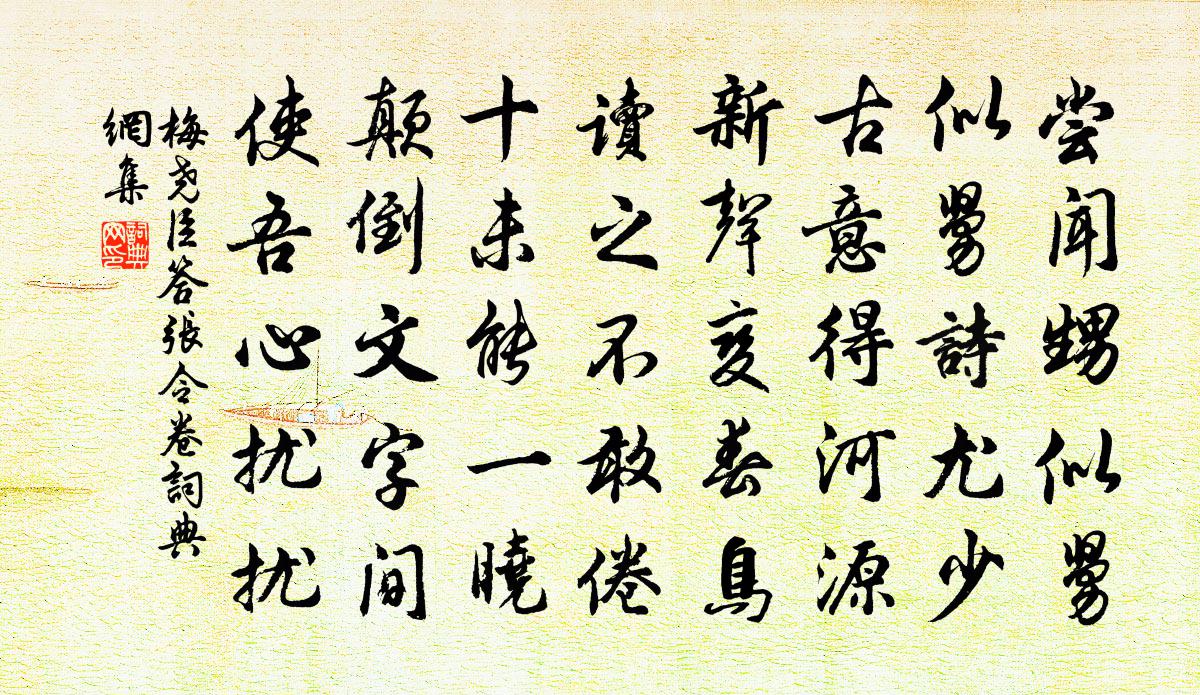 尝闻甥似舅
似舅詩尤少
古意得河源
新聲变春鳥
讀之不敢倦
十未能一曉
颠倒文字间
使吾心扰扰
梅尧臣答張令卷詞典
網集
詞典
网印